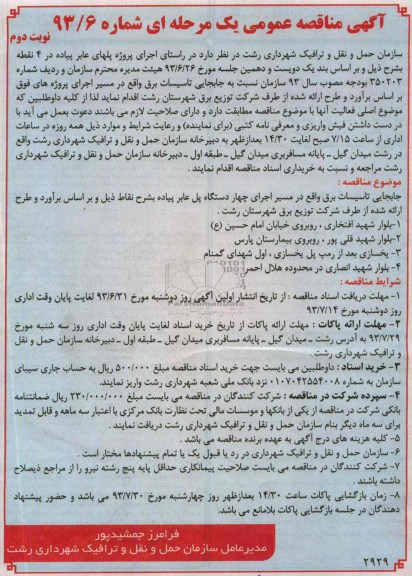 آگهی مناقصه عمومی یک مرحله ای شماره ۹۳/۶
نوبت دوم
سازمان حمل و نقل و ترافیک شهرداری رشت در نظر دارد در راستای اجرای پروژه پلهای عابر پیاده در ۴ نقطه
بشرح ذیل و بر اساس بند یک دویست و دهمین جلسه مورخ ۹۳/۶/۲۶ هیئت مدیره محترم سازمان و ردیف شماره
۳۵۰۲۰۳ بودجه مصوب سال ۹۳ سازمان نسبت به جابجایی تاسیسات برق واقع در مسیر اجرای پروژه های فوق
بر اساس برآورد و طرح ارائه شده از طرف شرکت توزیع برق شهرستان رشت اقدام نماید لذا از کلیه داوطلبین که
موضوع اصلی فعالیت آنها با موضوع مناقصه مطابقت دارد و دارای صلاحیت لازم می باشند دعوت بعمل می آید با
در دست داشتن فیش واریزی و معرفی نامه کتبی (برای نماینده) و رعایت شرایط و موارد ذیل همه روزه در ساعات
اداری از ساعت ۷/۱۵ صبح لغایت ۱۴/۳۰ بعدازظهر به دبیرخانه سازمان حمل و نقل و ترافیک شهرداری رشت واقع
در رشت میدان گیل ـ پایانه مسافربری میدان گیل ـ طبقه اول ـ دبیرخانه سازمان حمل و نقل و ترافیک شهرداری
رشت مراجعه و نسبت به خریداری اسناد مناقصه اقدام نمایند .
موضوع مناقصه :
جابجایی تاسیسات برق واقع در مسیر اجرای چهار دستگاه پل عابر پیاده بشرح نقاط ذیل و بر اساس برآورد و طرح
ارائه شده از طرف شرکت توزیع برق شهرستان رشت .
۱-بلوار شهید افتخاری ، روبروی خیابان امام حسین (ع)
۲-بلوار شهید قلی پور ، روبروی بیمارستان پارس
۳- یخسازی بعد از رمپ پل یخسازی ، اول شهدای گمنام
۴- بلوار شهید انصاری در محدوده هلال احمر
شرایط مناقصه :
۱- مهلت دریافت اسناد مناقصه : از تاریخ انتشار اولین آگهی روز دوشنبه مورخ ۹۳/۶/۳۱ لغایت پایان وقت اداری
روز دوشنبه مورخ ۹۳/۷/۱۴
۲- مهلت ارائه پاکات : مهلت ارائه پاکات از تاریخ خرید اسناد لغایت پایان وقت اداری روز سه شنبه مورخ
۹۳/۷/۲۹ به آدرس رشت ـ میدان گیل ـ پایانه مسافربری میدان گیل ـ طبقه اول ـ دبیرخانه سازمان حمل و نقل
و ترافیک شهرداری رشت .
۳- خرید اسناد : داوطلبین می بایست جهت خرید اسناد مناقصه مبلغ ۵۰۰/۰۰۰ ریال به حساب جاری سیبای
سازمان به شماره ۰۱۰۷۰۴۲۵۵۴۰۰۸ نزد بانک ملی شعبه شهرداری رشت واریز نمایند.
۴- سپرده شرکت در مناقصه : شرکت کنندگان در مناقصه می بایست مبلغ ۲۳۰/۰۰۰/۰۰۰ ریال ضمانتنامه
بانکی شرکت در مناقصه از یکی از بانکها و موسسات مالی تحت نظارت بانک مرکزی با اعتبار سه ماهه و قابل تمدید
برای سه ماه دیگر بنام سازمان حمل و نقل و ترافیک شهرداری رشت دریافت نمایند .
۵- کلیه هزینه های درج آگهی به عهده برنده مناقصه می باشد .
۶- سازمان حمل و نقل و ترافیک شهرداری در رد یا قبول یک یا تمام پیشنهادها مختار است .
۷- شرکت کنندگان در مناقصه می بایست صلاحیت پیمانکاری حداقل پایه پنج رشته نیرو را از مراجع ذیصلاح
داشته باشند .
۸- زمان بازگشایی پاکات ساعت ۱۴/۳۰ بعدازظهر روز چهارشنبه مورخ ۹۳/۷/۳۰ می باشد و حضور پیشنهاد
دهندگان در جلسه بازگشایی پاکات بلامانع می باشد.
فرامرز جمشیدپور
مدیرعامل سازمان حمل و نقل و ترافیک شهرداری رشت
۲۹۲۹